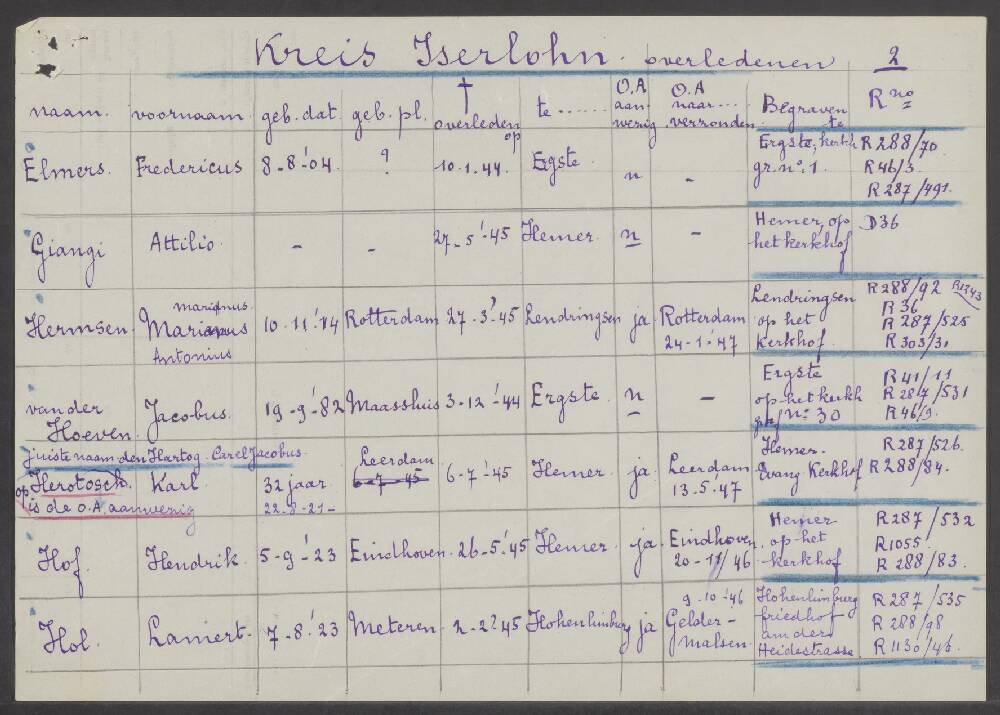 Kreis Iserlohn. overledenen 2
naam. voornaam. geb. dat. geb. pl. † overleden op te ...... O.A aanwezig O.A naar... verzonden Begraven te R no
Elmers. Fredericus 8-8-'04. ? 10-1-44. Ergste n - Ergste, kerkh gr. no. 1. R 288/70 R 46/3 R 287/491.
Giangi Attilio - - 27-5-'45 Hemer. n - Hemer, op het kerkhof D36
Hermsen marianus. Antonius 10-11-'14 Rotterdam 27-3-'45 Lendringsen ja Rotterdam 24-1-'47 Lendringsen op het kerkhof. R 288/92 R 36 R 287/525 R 303/31
van der Hoeven. Jacobus. 19-9-'82 Maassluis 3-12-'44 Ergste. n - Ergste op het kerkh no 30 R 41/11 R 287/531 R 46/3.
Juiste naam den Hartog. Carel Jacobus.
op Herotosch. Karl 32 jaar 22-8-21- Leerdam 6-7-'45 Hemer. ja Leerdam 13-5-'47 Hemer. Evang Kerkhof R 287/526. R 288/84.
is de O.A. aanwezig
Hof. Hendrik. 5-9-'23 Eindhoven. 26-5-'45 Hemer. ja Eindhoven. 20-11/46 Hemer op het kerkhof R 287/532 R1055. R 288/83.
Hol. Lamert. 7-8-'23 Meteren 2-2-45 Hohenlimburg ja 9-10-'46 Geldermalsen. Hohenlimburg friedhof am der Heidestrasse R 287/535 R 288/98 R 1130/46.